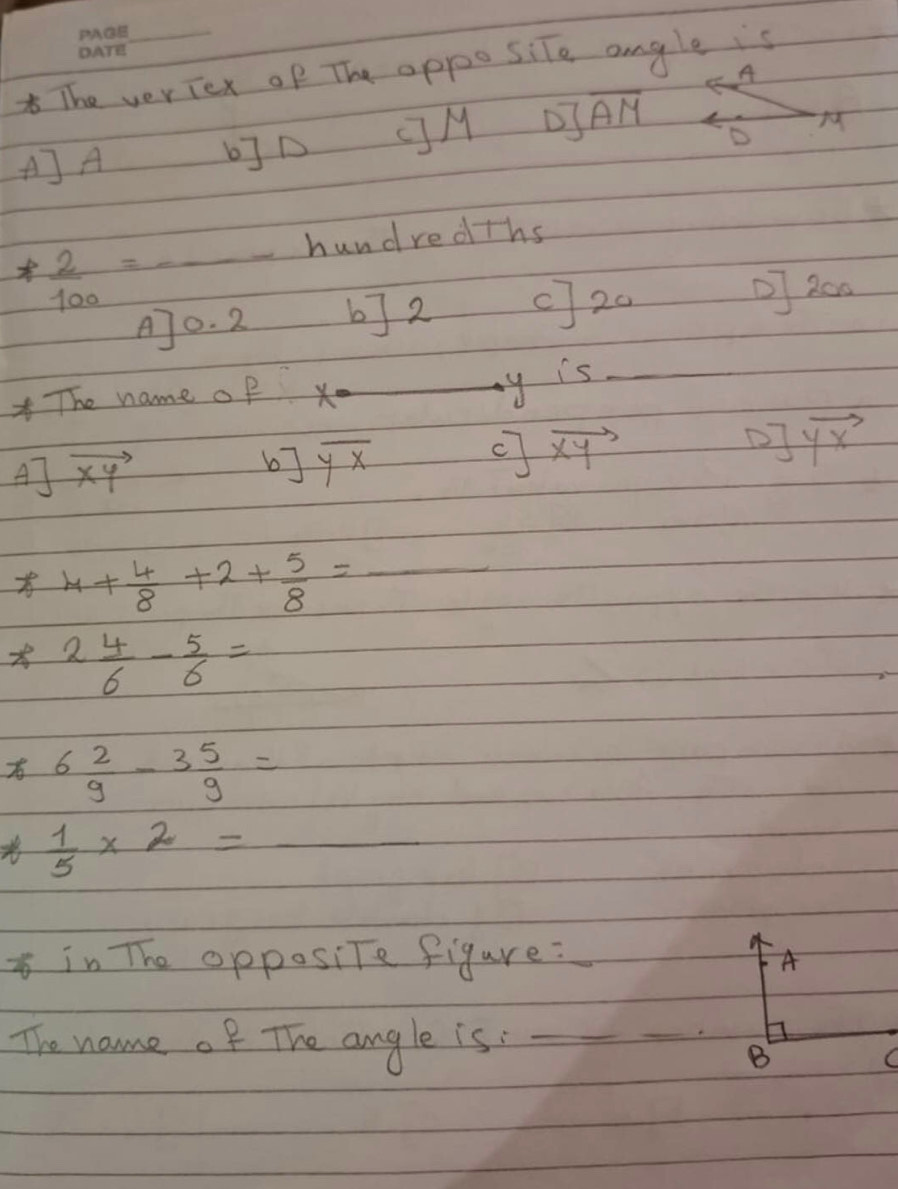 PAGE
DATE
* The vertex of The opposite angle is
A] A b] D C] M D] A̅M̅
A
D
M
* 2/100 = ----- hundredths
A] 0.2 b] 2 C] 20 D] 200
* The name of : x y is
A] xy→ b] y̅x̅ C] xy→ D] yx→
* 4 + 4/8 + 2 + 5/8 =
* 2 4/6 - 5/6 =
* 6 2/9 - 3 5/9 =
* 1/5 × 2 =
* in The opposite figure:-
A
The name of The angle is: — — — .
B C